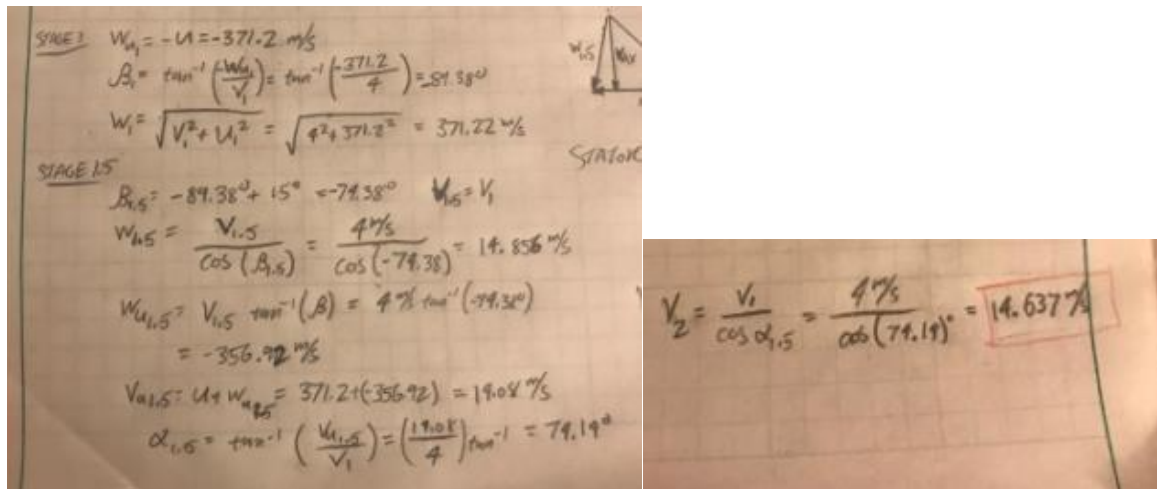 STAGE 1 Wu₁ = -U = -371.2 m/s
β₁ = tan⁻¹ (-Wu₁/V₁) = tan⁻¹ (-371.2/4) = -89.38°
W₁ = √(V₁² + U₁²) = √(4² + 371.2²) = 371.22 m/s
STAGE 1.5
β₁.₅ = -89.38° + 15° = -74.38° V₁.₅ = V₁
W₁.₅ = V₁.₅/cos(β₁.₅) = 4 m/s/cos(-74.38) = 14.856 m/s
Wu₁.₅ = V₁.₅ tan⁻¹(β) = 4 m/s tan⁻¹(-74.38°)
= -356.92 m/s
Vu1.5 = U + Wu1.5 = 371.2+(-356.92) = 14.08 m/s
α₁.₅ = tan⁻¹ (Vu₁.₅/V₁) = (14.08/4) tan⁻¹ = 74.14°
W1.5
STATOR
V₂ = V₁/cos α₁.₅ = 4 m/s/cos(74.14)° = 14.637 m/s